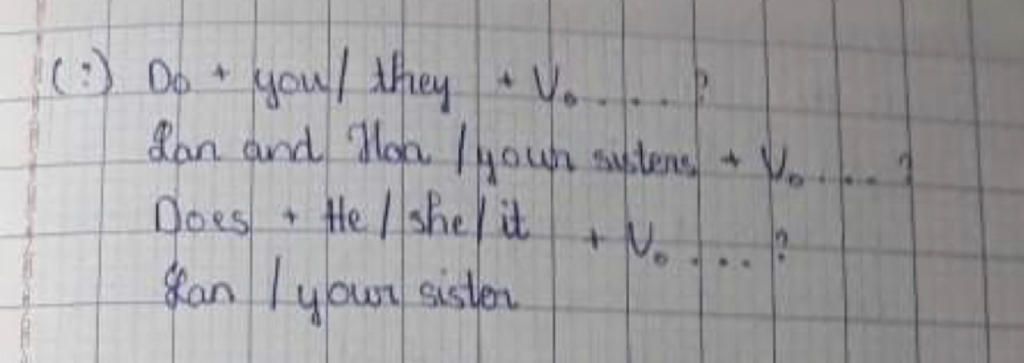 (?) Do + you / they + V₀ ....?
Lan and Hoa / your sisters + V₀ ....?
Does + He / she / it + V₀ ....?
Lan / your sister